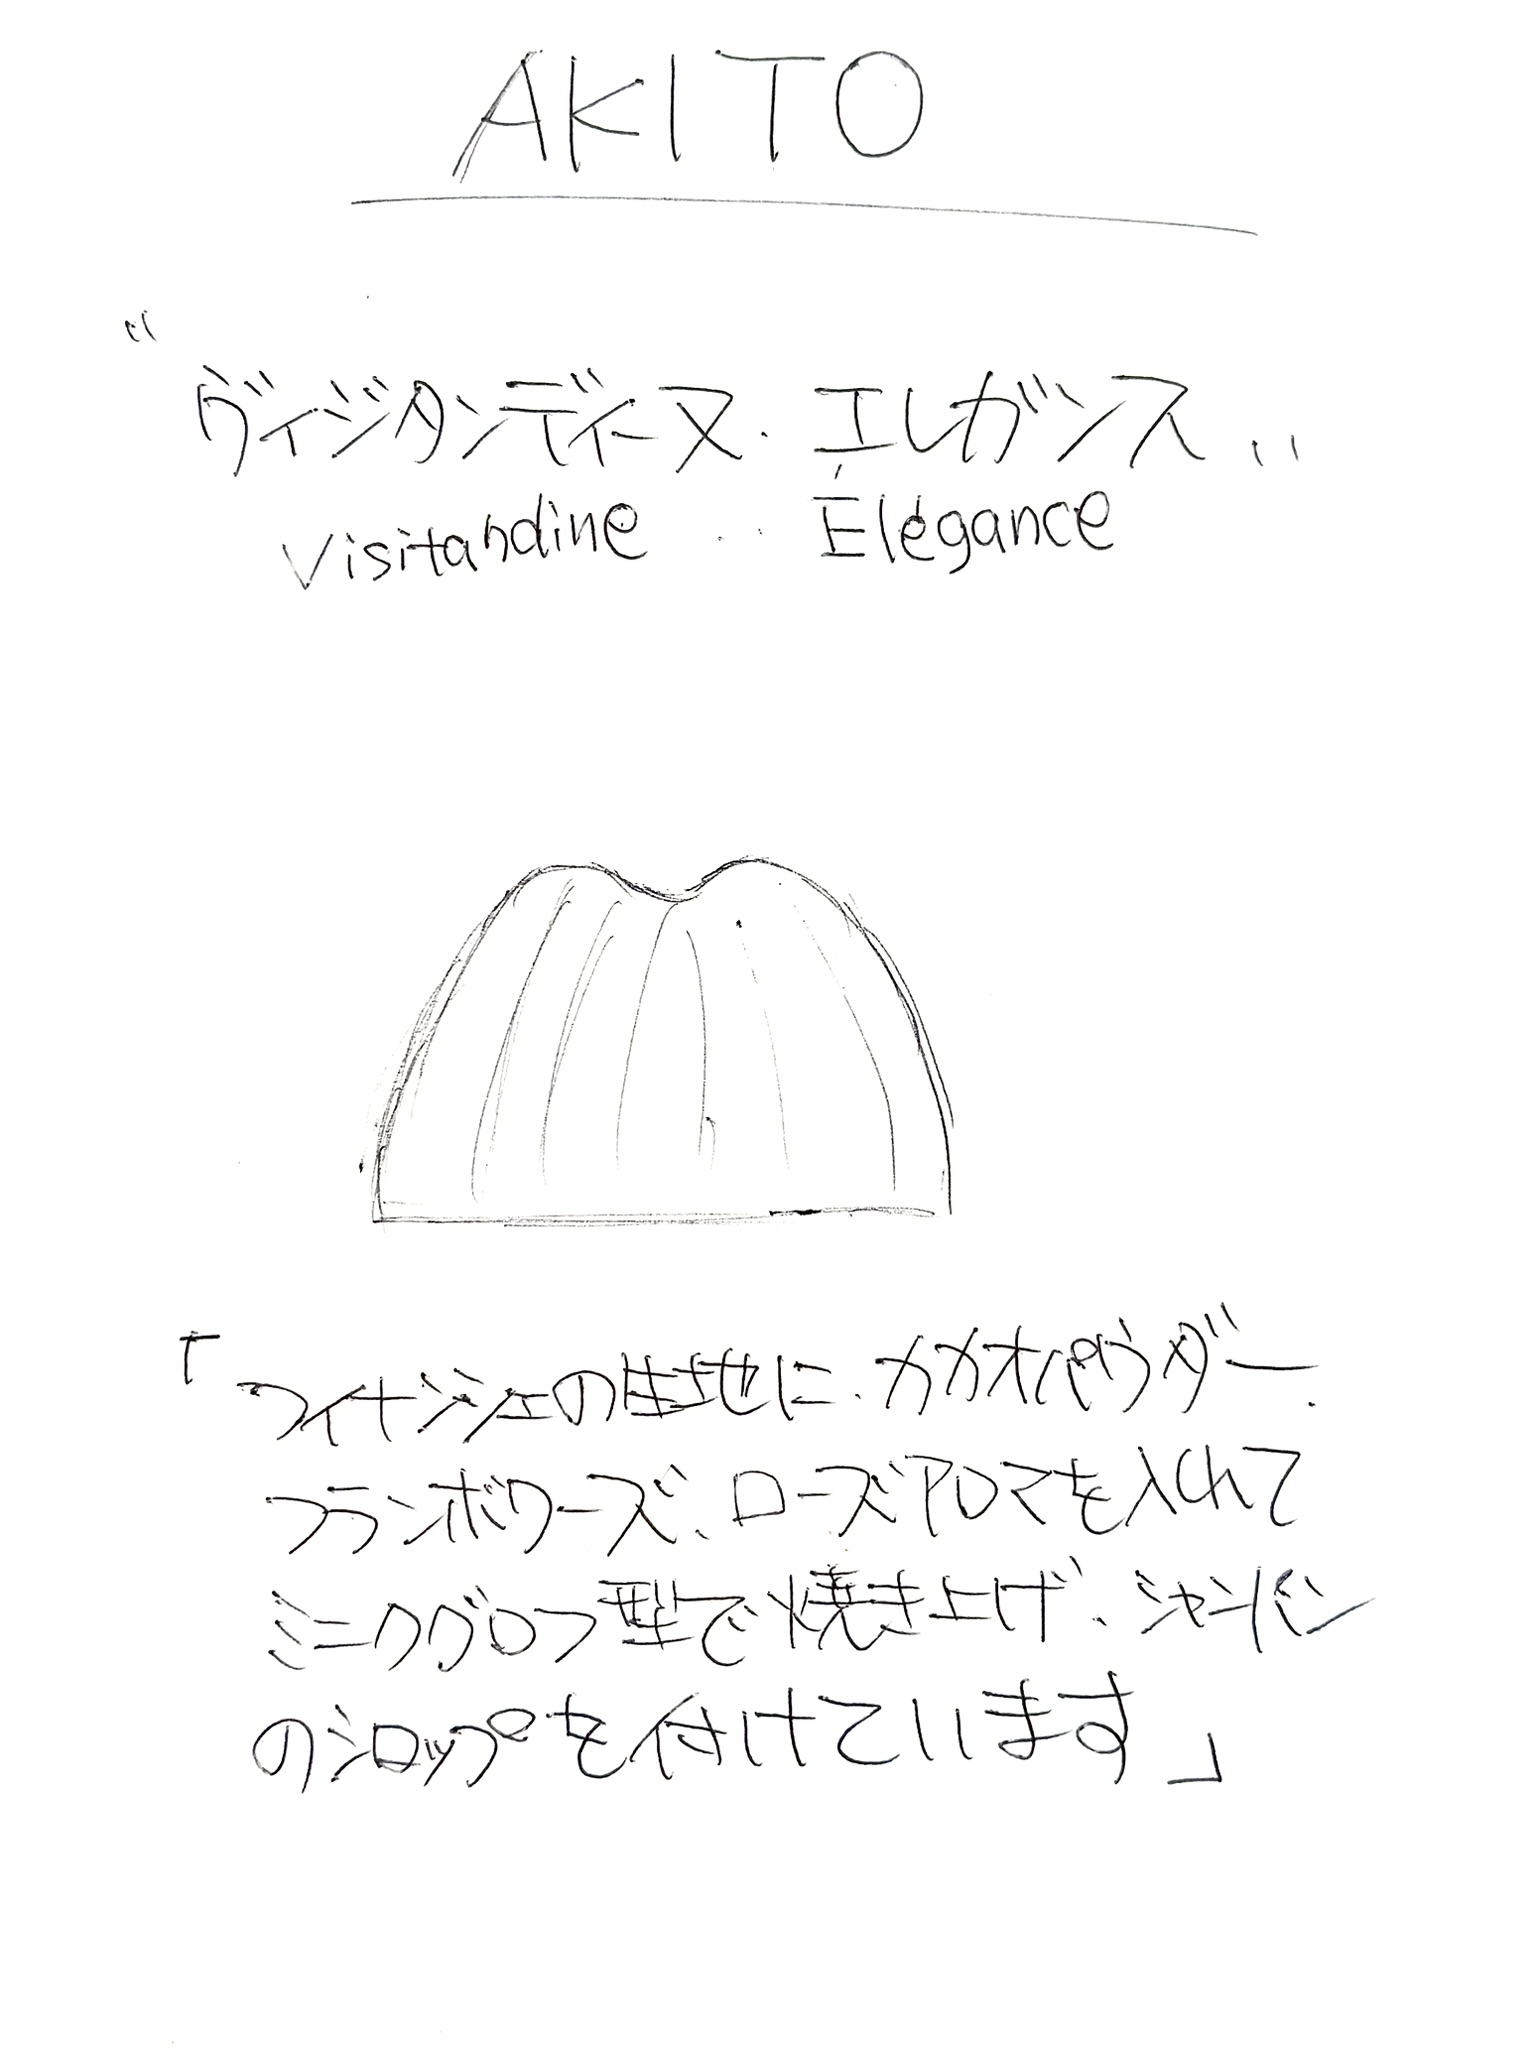 AKITO
“ヴィジタンディーヌ.エレガンス„
Visitandine .. Élégance
「フィナンジェの生地に、カカオパウダー、
フランボワーズ、ローズアロマを入れて
ミニクグロフ型で焼き上げ、シャンパン
のシロップを付けています」